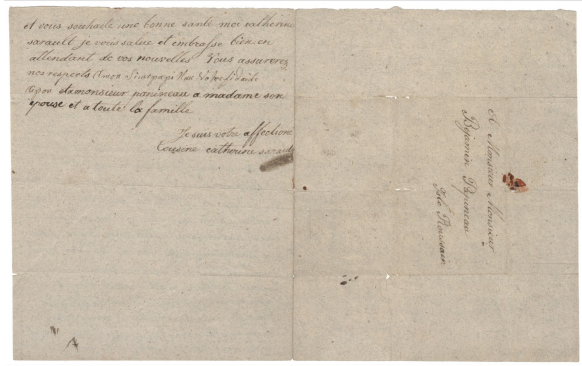 et vous souhaite une bonne santé moi catherine
sarault je vous salue et embrasse bien en
attendant de vos nouvelles Vous assurerez
nos respects
damonsieur papineau a madame son
epouse et a toute la famille
Je suis votre affection
Cousine catherine sarault
A Monsieur Monsieur
Benjemin Papineau